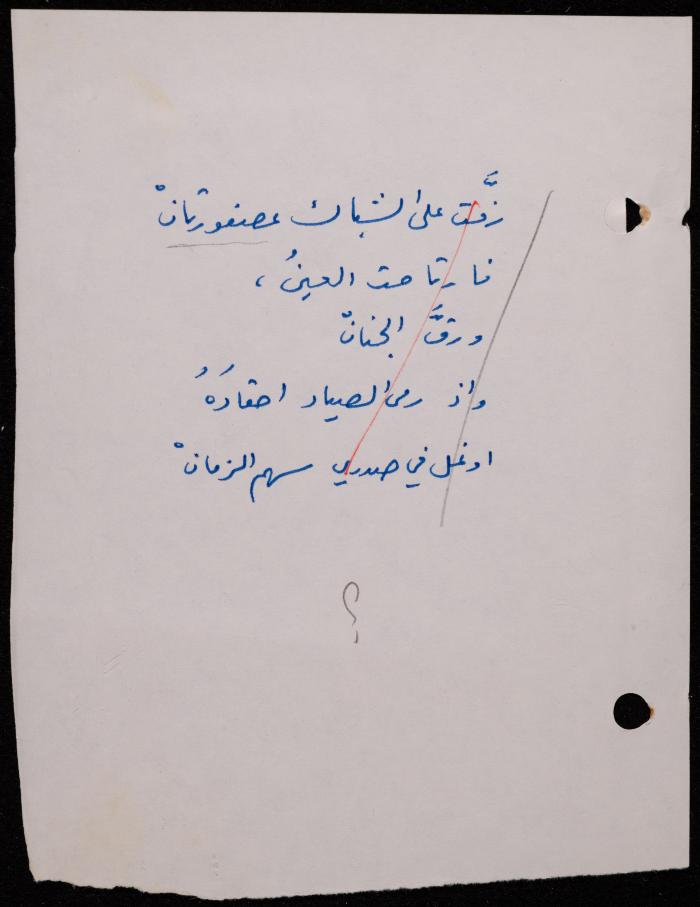 زفَّت على الشباك عصفورتانْ
فارتاحت العينُ ،
ورقَّ الجنانْ
واذ رمى الصياد احقادَهُ
اوغل في صدري سهم الزمانْ
؟